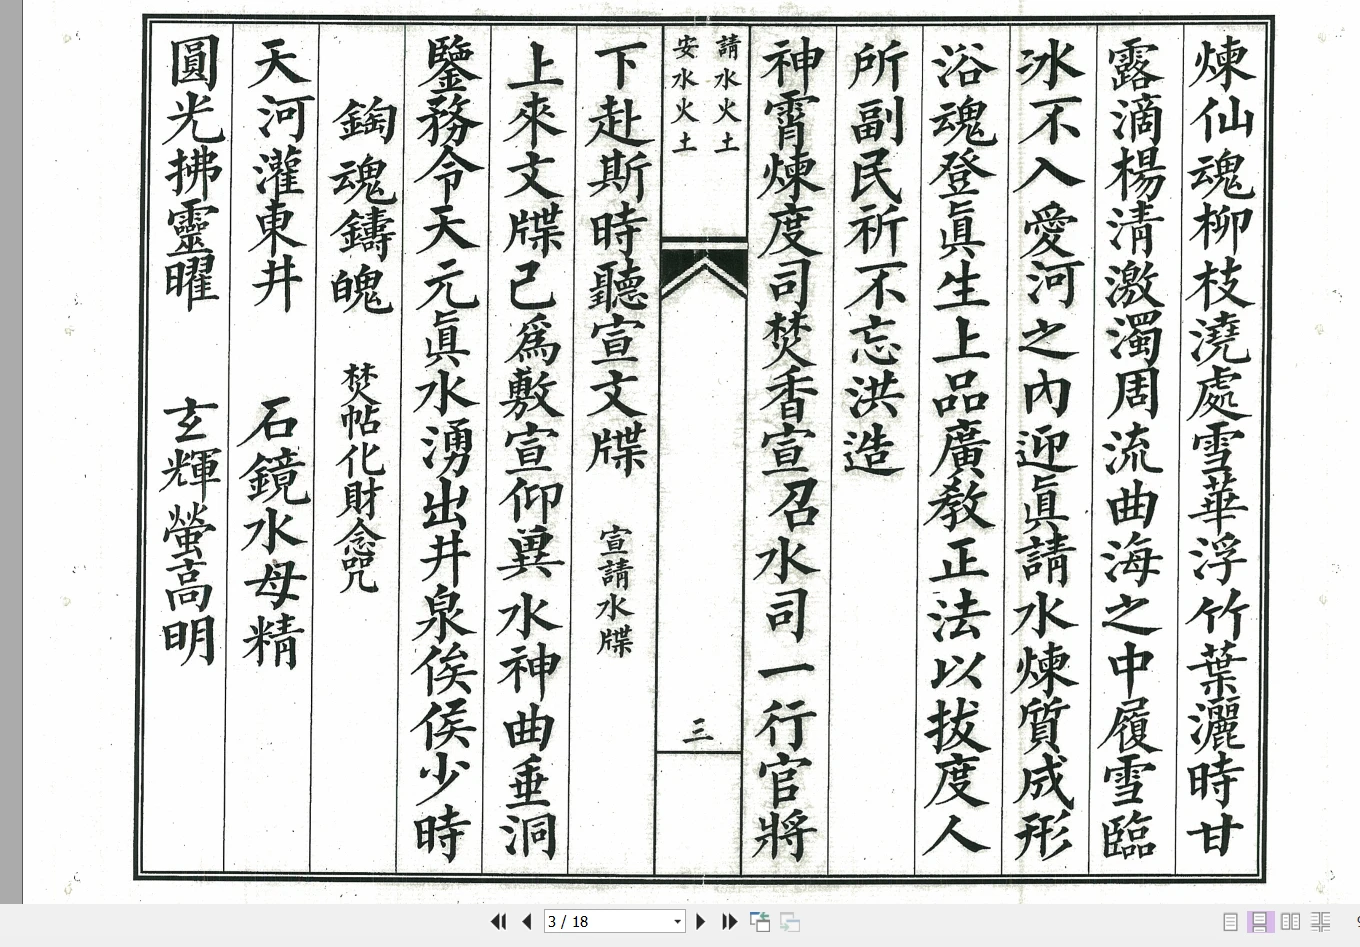 煉仙魂柳枝澆處雪華浮竹葉灑時甘
露滴楊清激濁周流曲海之中履雪臨
冰不入愛河之內迎眞請水煉質成形
浴魂登眞生上品廣敎正法以拔度人
所副民祈不忘洪造
神霄煉度司焚香宣召水司一行官將
請水火土
安水火土
三
下赴斯時聽宣文牒 宣請水牒
上來文牒已爲敷宣仰兾水神曲垂洞
鑒務令天元眞水湧出井泉俟侯少時
鋾魂鑄魄 焚帖化財念咒
天河灌東井 石鏡水母精
圓光拂靈曜 玄輝螢高明
3 / 18